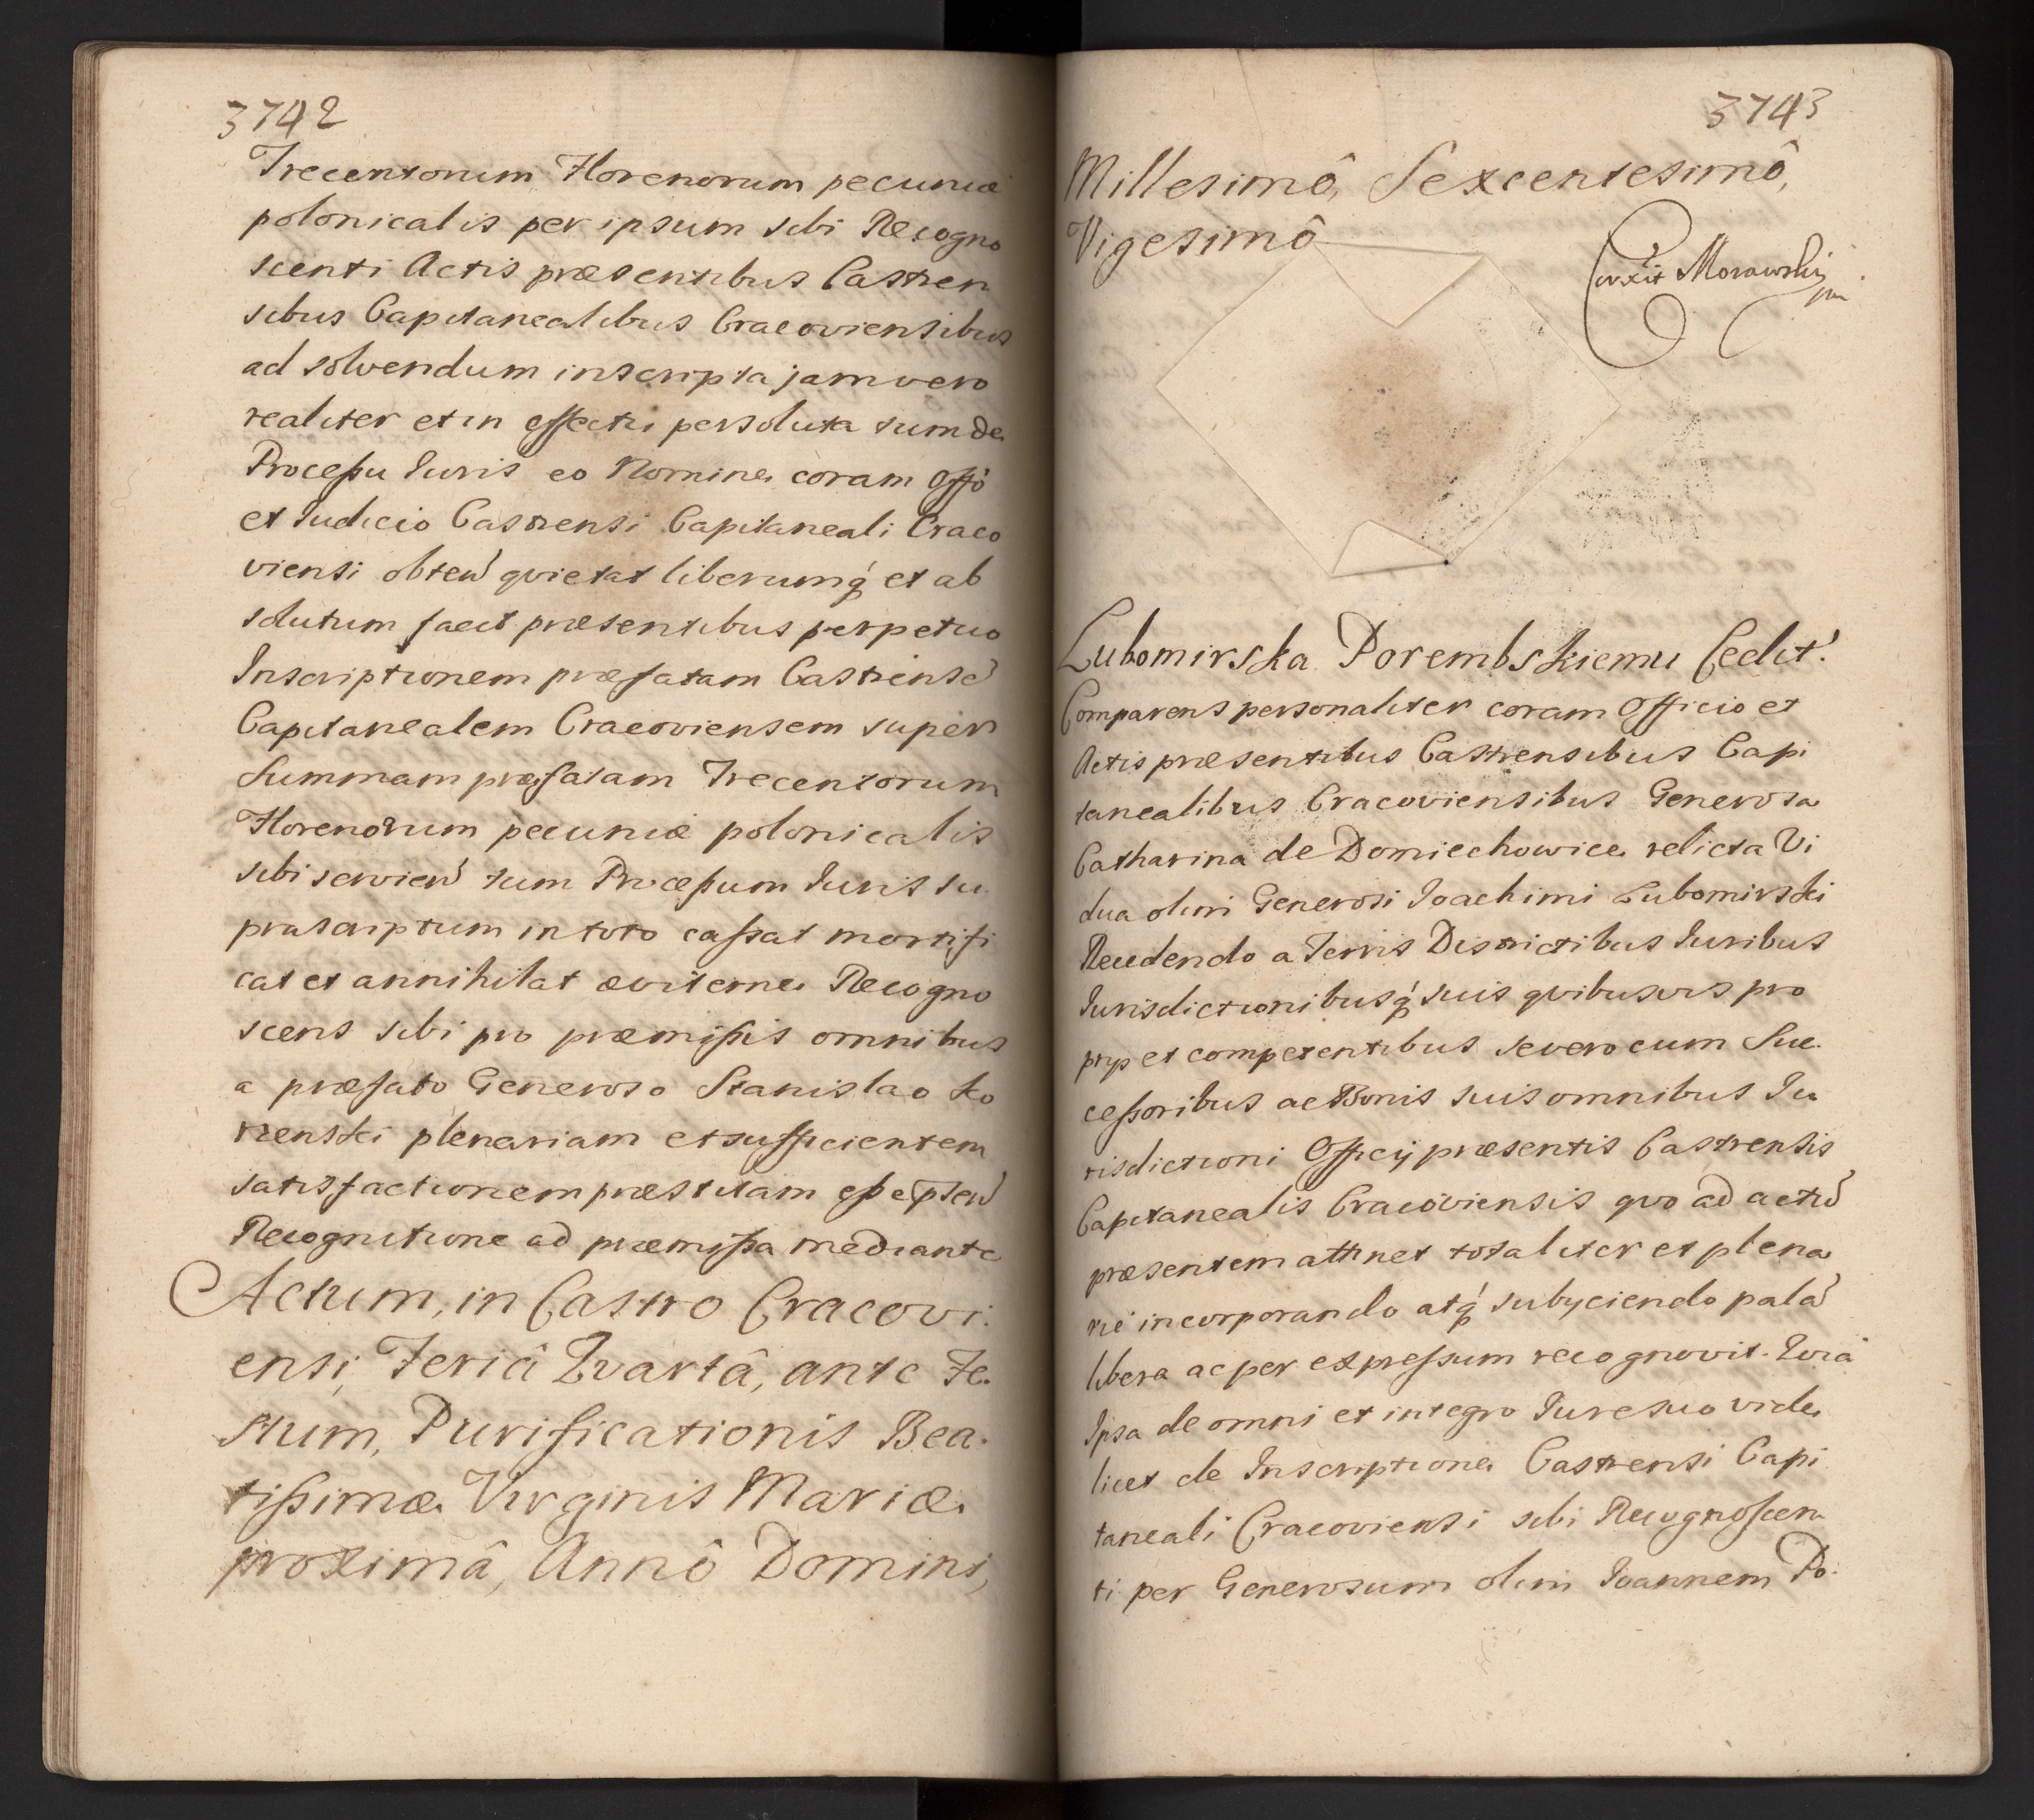 3742
Trecentorum Florenorum pecuniæ
polonicalis per ipsum sibi Recogno
scenti Actis præsentibus Castren
sibus Capitanealibus Cracoviensibus
ad solvendum inscripta jam vero
realiter et in effectu persoluta tum de
Processu Iuris eo Nomine coram Offo
et Iudicio Castrensi Capitaneali Craco
viensi obten quietat liberumq et ab
solutum facit præsentibus perpetuo
Inscriptionem præfatam Castrense
Capitanealem Cracoviensem super
Summam præfatam Trecentorum
Florenorum pecuniæ polonicalis
sibi servien tum Processum Iuris su
prascriptum in toto cassat mortifi
cat et annihilat æviterne Recogno
scens sibi pro præmissis omnibus
a præfato Generoso Stanislao Ko
rzenski plenariam et sufficientem
satisfactionem præstitam esse pten
Recognitione ad præmissa mediante
Actum, in Castro Cracovi.
ensi, Feriâ Qvartâ, ante Fe.
stum, Purificationis Bea.
tissimæ Virginis Mariæ
proximâ, Annô Domini,
3743
Millesimô, Sexcentesimô,
Vigesimô
Corxit Morawski mp
Lubomirska Porembskiemu Cedit.
Comparens personaliter coram Officio et
Actis præsentibus Castrensibus Capi
tanealibus Cracoviensibus Generosa
Catharina de Domiechowice relicta Vi
dua olim Generosi Ioachimi Lubomirski
Recedendo a Terris Districtibus Iuribus
Iurisdictionibusq suis qvibusvis pro
prys et competentibus se vero cum Suc.
cessoribus ac Bonis suis omnibus Iu
risdictioni Officij præsentis Castrensis
Capitanealis Cracoviensis qvo ad actu
præsentem attinet totaliter et plena
rie incorporando atq subyciendo pala
libera ac per expressum recognovit. Qvia
Ipsa de omni et integro Iure suo vide
licet de Inscriptione Castrensi Capi
taneali Cracoviensi sibi Recognoscen
ti per Generosum olim Ioannem Po.